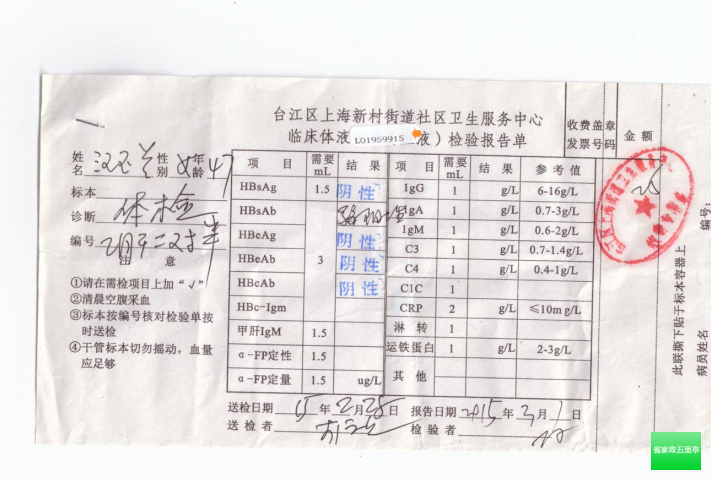 台江区上海新村街道社区卫生服务中心
临床体液 L01959915 液）检验报告单
收费盖章
发票号码
金额
姓名
性别 女
年龄 47
标本
诊断 体检
编号
注 意
①请在需检项目上加“√”
②清晨空腹采血
③标本按编号核对检验单按
时送检
④干管标本切勿摇动，血量
应足够
项 目 需要mL 结 果 项 目 需要mL 结 果 参 考 值
HBsAg 1.5 阴性 IgG 1 g/L 6-16g/L
HBsAb 3 IgA 1 g/L 0.7-3g/L
HBcAg 阴性 IgM 1 g/L 0.6-2g/L
HBeAb 阴性 C3 1 g/L 0.7-1.4g/L
HBcAb 阴性 C4 1 g/L 0.4-1g/L
C1C 1
HBc-Igm CRP 2 g/L ≤10mg/L
甲肝IgM 1.5 淋 转 1
α-FP定性 1.5 运铁蛋白 1 g/L 2-3g/L
α-FP定量 1.5 ug/L 其 他
送检日期 15 年 2 月 28 日 报告日期 2015 年 3 月 1 日
送 检 者 检 验 者
编号:
此联撕下贴于标本容器上
病员姓名
省家政五里亭